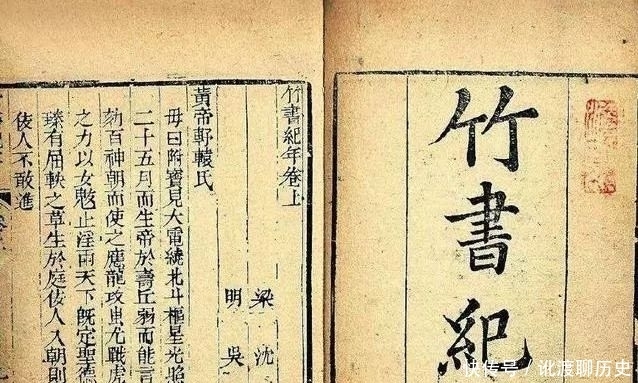 竹書紀
竹書紀年卷上
梁 沈
明 吳
黃帝軒轅氏
母曰附寶見大電繞北斗樞星光照
二十五月而生帝於壽丘弱而能言
劾百神朝而使之應龍攻蚩尤戰虎
之力以女魃止淫雨天下既定聖德
臻有屈軼之草生於庭佞人入朝則
佞人不敢進
快传号 / 讹渡聊历史